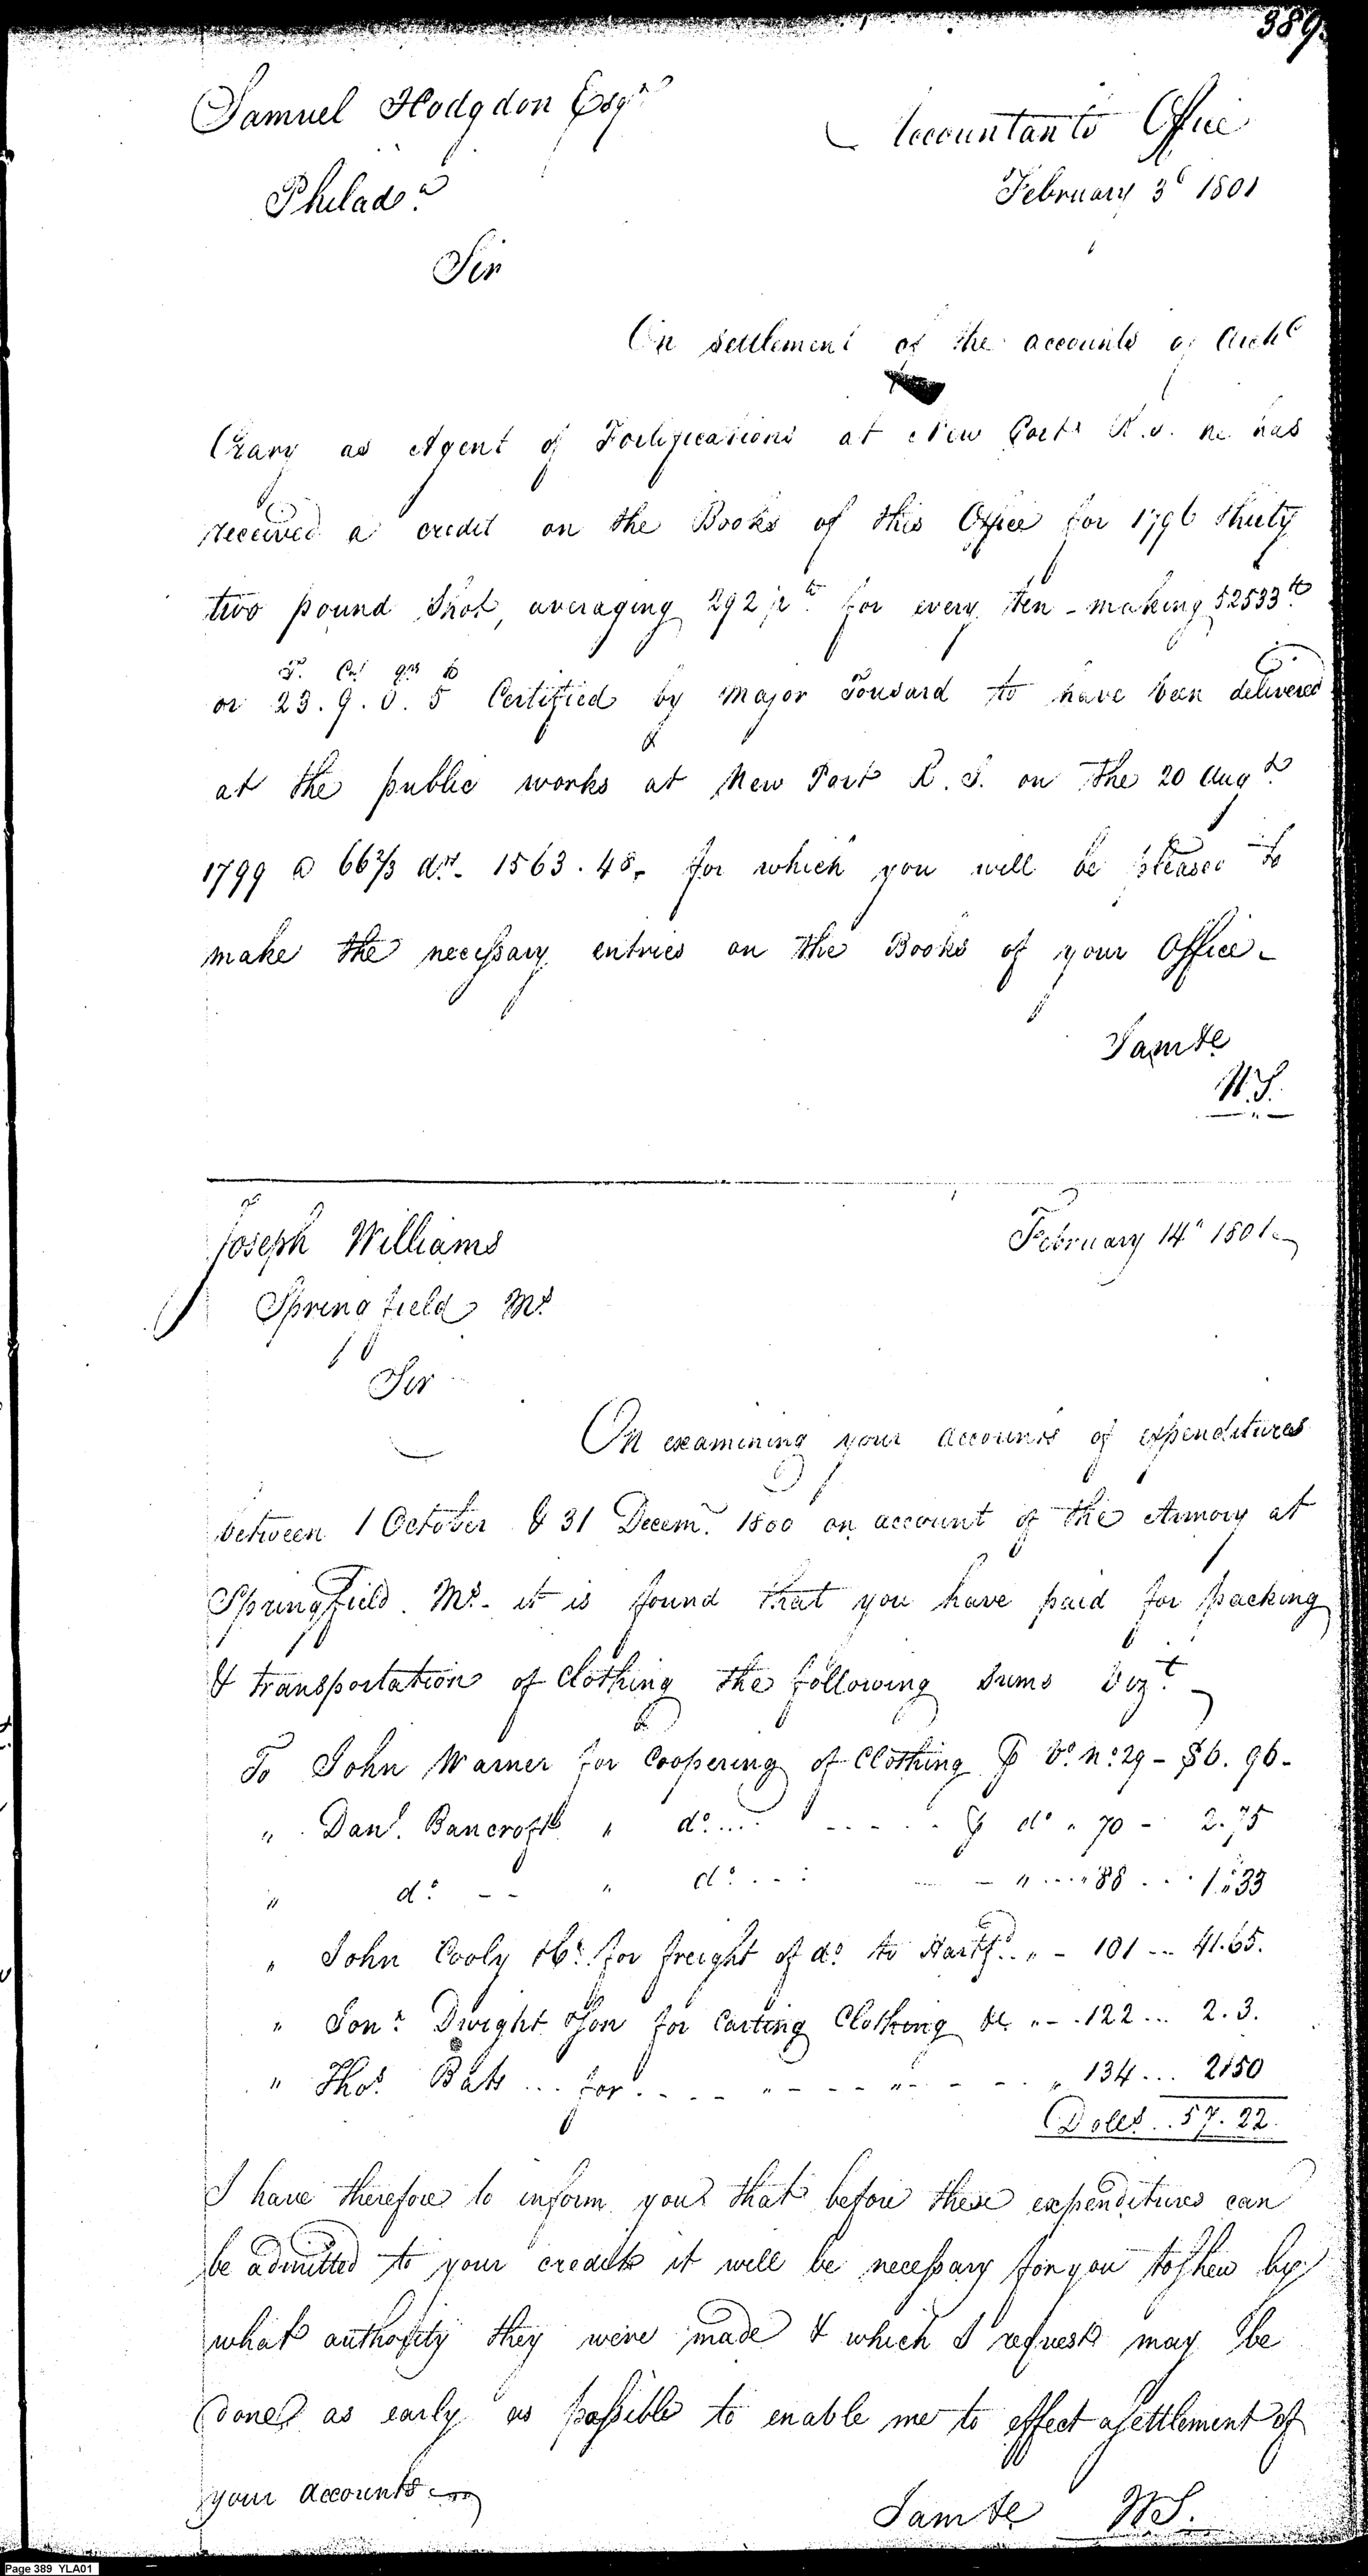 389.
Samuel Hodgdon Esqr
Accountants Office
Philada
February 3d 1801
Sir
On settlement of the accounts of Archd
Crary as Agent of Fortifications at New Port R.I. he has
received a credit on the Books of this Office for 1796 thirty
two pound Shot, averaging 292 lb for every ten - making 52533 lb
T. Ct. qrs lb
or 23. 9. 0. 5 Certified by Major Tousard to have been delivered
at the public works at New Port R. I. on the 20 Augt
1799 @ 66 2/3 drs. 1563. 48. for which you will be pleased to
make the necessary entries on the Books of your Office -
I am &c
W.S.
Joseph Williams
February 14th 1801
Springfield Ms.
Sir
On examining your accounts of expenditures
between 1 October & 31 Decemr. 1800 on account of the Armory at
Springfield Ms. it is found that you have paid for packing
& transportation of Clothing the following sums vizt.
To John Warner for Coopering of Clothing ⅌ Vo. No. 29 - $6. 96 -
" Danl. Bancroft " do. ... - - - - - ⅌ do " 70 - 2. 75
" do. - - " do. - - : - - " .... " 88 ... 1. 33
" John Cooly for freight of do. to Hartfd. " - 101 ... 41. 65.
" Jona. Dwight & Son for Carting Clothing &c " - . 122 ... 2. 3.
" Thos. Bats ... for - - - - " - - - - " - - - " 134 ... 2.50
Dolls. .. 57. 22.
I have therefore to inform you that before these expenditures can
be admitted to your credit it will be necessary for you to shew by
what authority they were made & which I request may be
done as early as possible to enable me to effect a settlement of
your accounts
I am &c W.S.
Page 389 YLA01